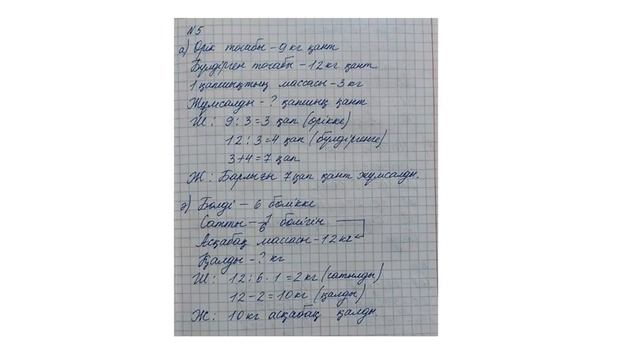 №5
а) Өрік тосабы – 9 кг қант
Бүлдірген тосабы – 12 кг қант
1 қапшықтың массасы – 3 кг
Жұмсалды – ? қапшық қант
Ш: 9 : 3 = 3 қап (өрікке)
12 : 3 = 4 қап (бүлдіргенге)
3 + 4 = 7 қап
Ж: Барлығы 7 қап қант жұмсалды.
ә) Бөлді – 6 бөлікке
Сатты – 1/6 бөлігін
Асқабақ массасы – 12 кг
Қалды – ? кг
Ш: 12 : 6 · 1 = 2 кг (сатылды)
12 – 2 = 10 кг (қалды)
Ж: 10 кг асқабақ қалды.